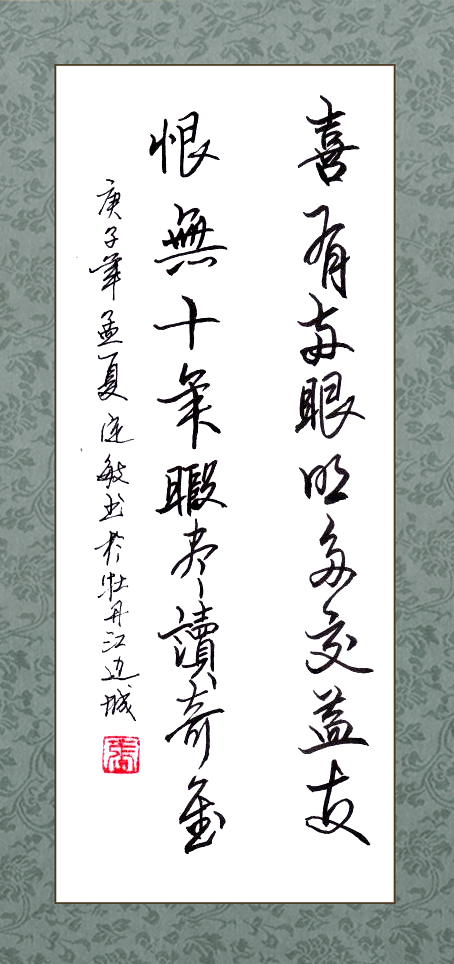 喜有两眼明多交益友
恨無十年暇尽讀奇書
庚子年孟夏敏书於牡丹江边城
張